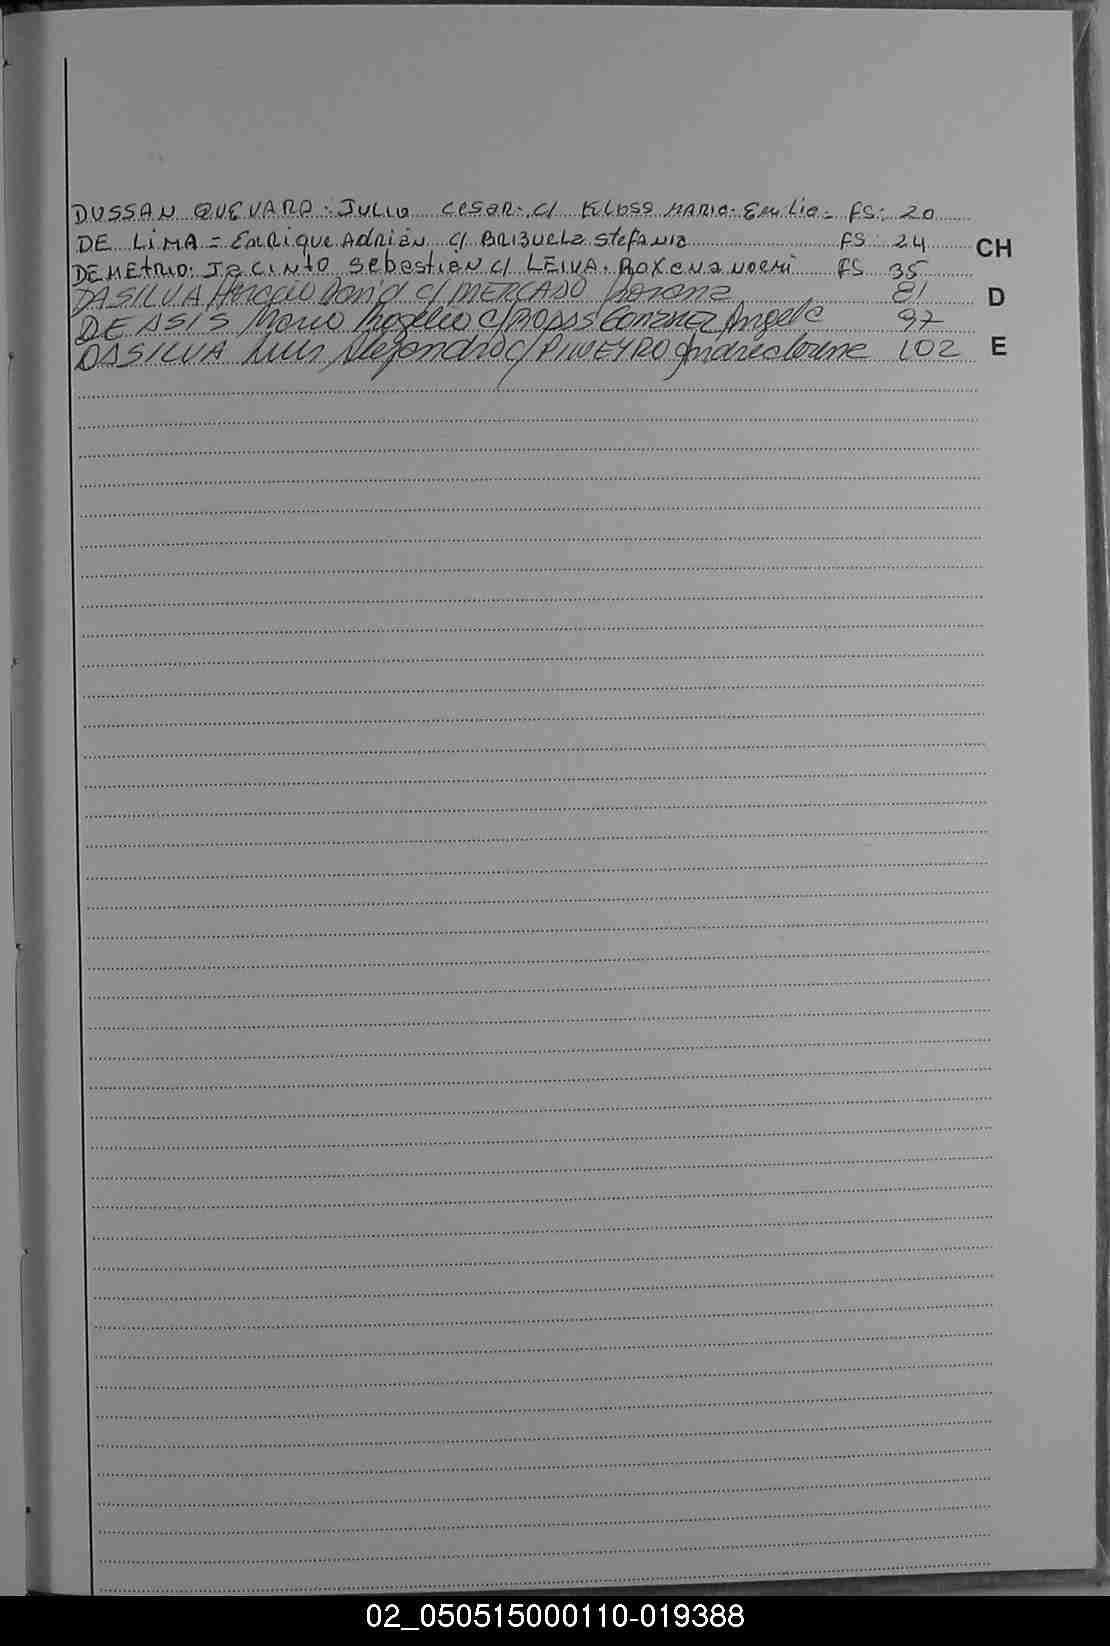 DUSSAN QUEVARA : JULIO CESAR. C/ KLOSS MARIA. Emilia. FS: 20
DE LIMA = Enrique Adrián C/ BRIZUELA Stefania FS: 24
CH
DEMETRIO: JACINTO SebastiAN C/ LEIVA. ROXANA NOEMI FS 35
DASILVA Horacio David C/ MERCADO 81
D
DE ASIS Mario Rogelio C/ ROJAS Gonzalez Angela 97
DASILVA Luis Alejandro C/ PINEYRO 102
E
02_050515000110-019388